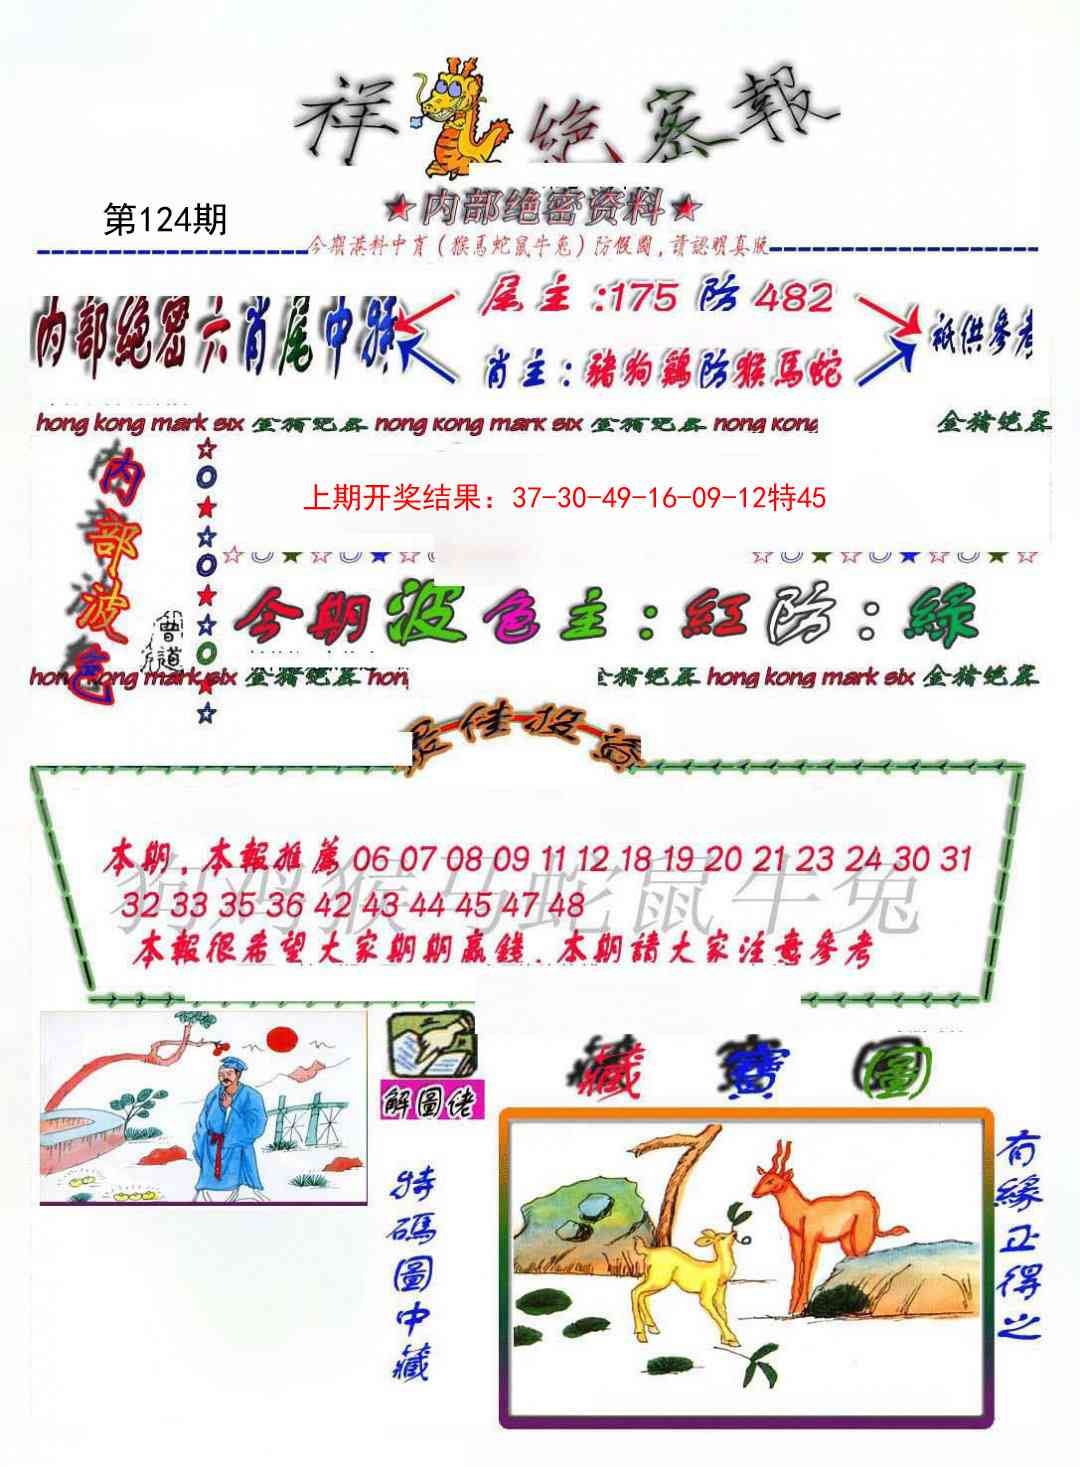 祥 絶密報
★内部绝密资料★
第124期
今期港料中肖（猴馬蛇鼠牛兔）防假圖,請認明真版
内部絶密六肖尾中特
尾主:175防482
肖主:豬狗鷄防猴馬蛇
衹供參考
hong kong mark six 金猪绝密 hong kong mark six 金猪绝密 hong kong 金猪绝密
内部波色
上期开奖结果：37-30-49-16-09-12特45
曾道
今期波色主:紅防:綠
hong kong mark six 金猪绝密 hong 金猪绝密 hong kong mark six 金猪绝密
最佳投资
本期,本報推薦06 07 08 09 11 12 18 19 20 21 23 24 30 31
32 33 35 36 42 43 44 45 47 48
狗鸡猴马蛇鼠牛兔
本報很希望大家期期贏錢.本期請大家注意參考
解圖佬
特碼圖中藏
藏寶圖
有緣正得之